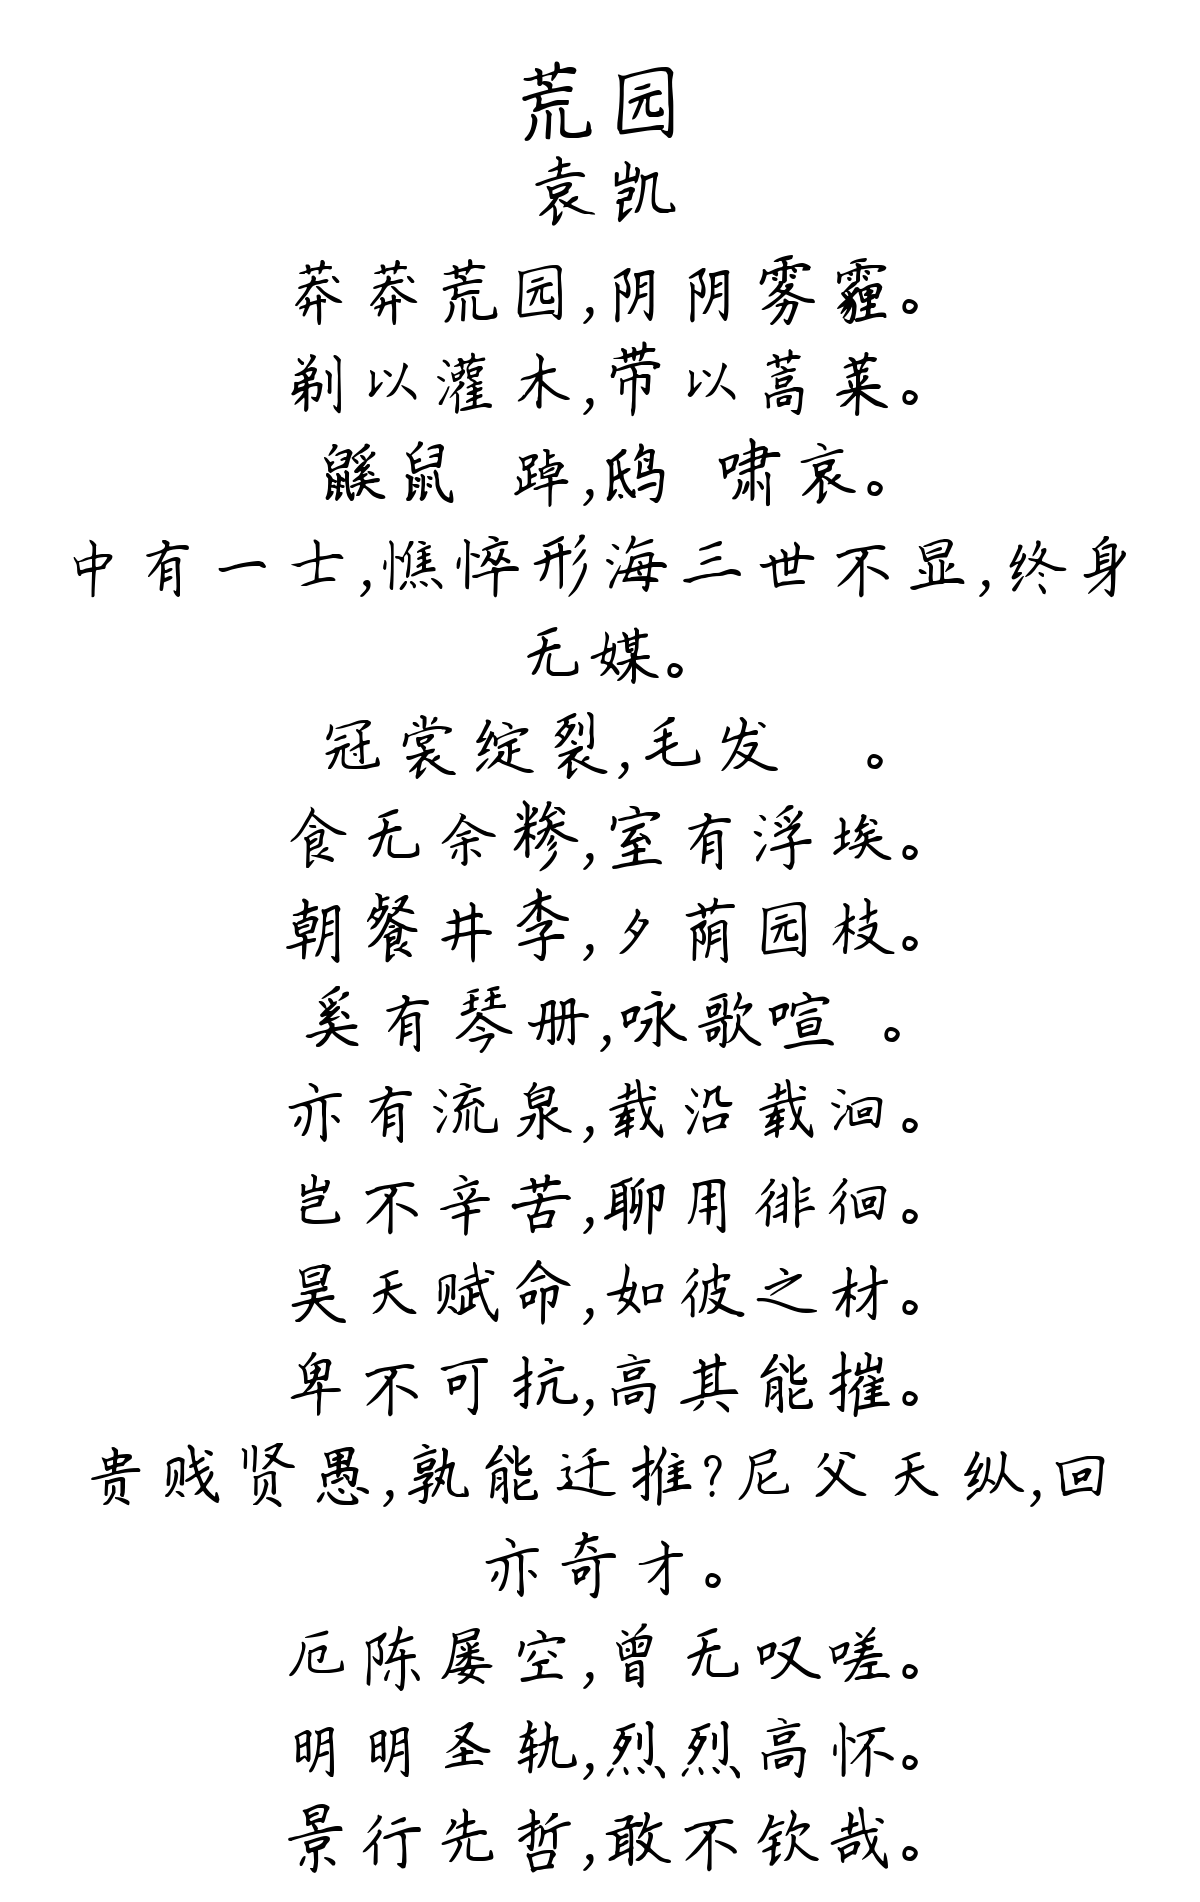 荒园
袁凯
莽莽荒园,阴阴雾霾。
剃以灌木,带以蒿莱。
鼷鼠 踔,鸱 啸哀。
中有一士,憔悴形海三世不显,终身
无媒。
冠裳绽裂,毛发 。
食无余糁,室有浮埃。
朝餐井李,夕荫园枝。
奚有琴册,咏歌喧 。
亦有流泉,载沿载洄。
岂不辛苦,聊用徘徊。
昊天赋命,如彼之材。
卑不可抗,高其能摧。
贵贱贤愚,孰能迁推?尼父天纵,回
亦奇才。
厄陈屡空,曾无叹嗟。
明明圣轨,烈烈高怀。
景行先哲,敢不钦哉。